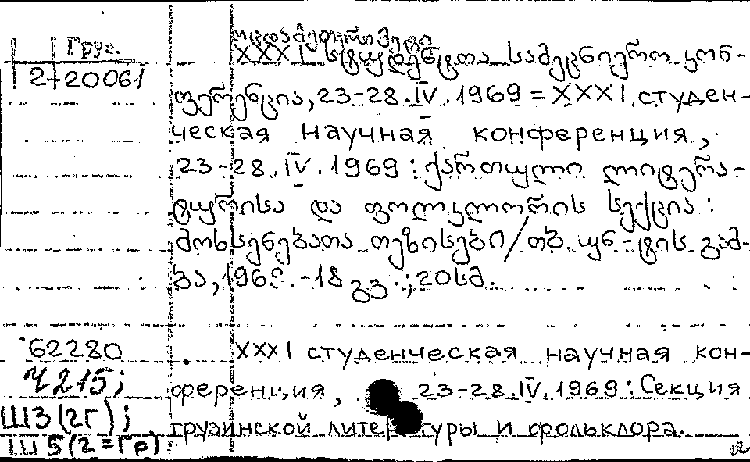 ოცდამეთერთმეტე
Груз.
XXXI სტუდენტთა სამეცნიერო კონ-
2-20061
ფერენცია, 23-28.IV.1969 = XXXI студен-
ческая научная конференция,
23-28.IV.1969: ქართული ლიტერა-
ტურისა და ფოლკლორის სექცია:
მოხსენებათა თეზისები/თბ. უნ-ტის გამ-
ბა, 1969.-18 გვ.; 20სმ.
62280
XXXI студенческая научная кон-
Ч215;
ференция, 23-28.IV.1969: Секция
Ш3(2Г);
грузинской литературы и фольклора.
Ш5(2=Гр)